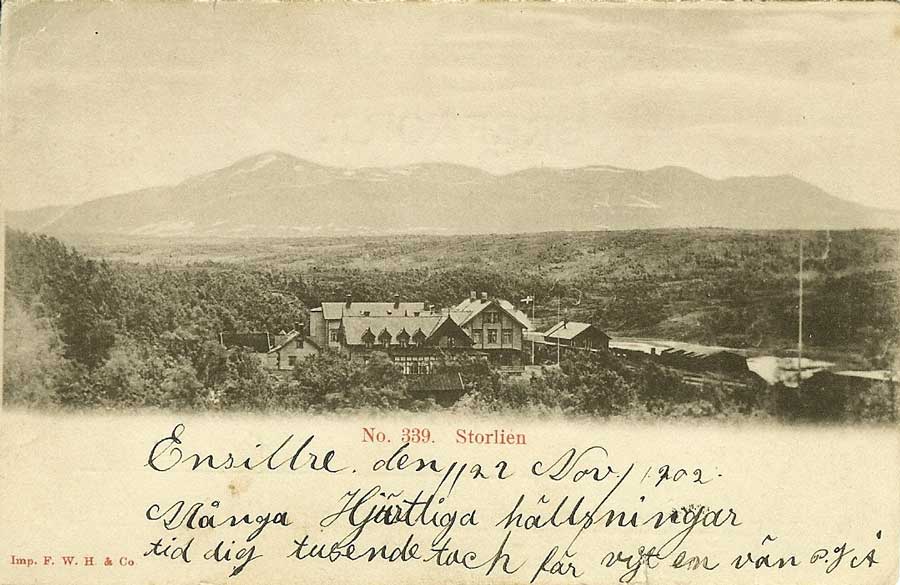 No. 339. Storlien
Ensillre. den 22 Nov 1902.
Många Hjärtliga hälsningar
tid dig tusende tack för vyt en vän P. J Å
Imp. F. W. H. & Co.